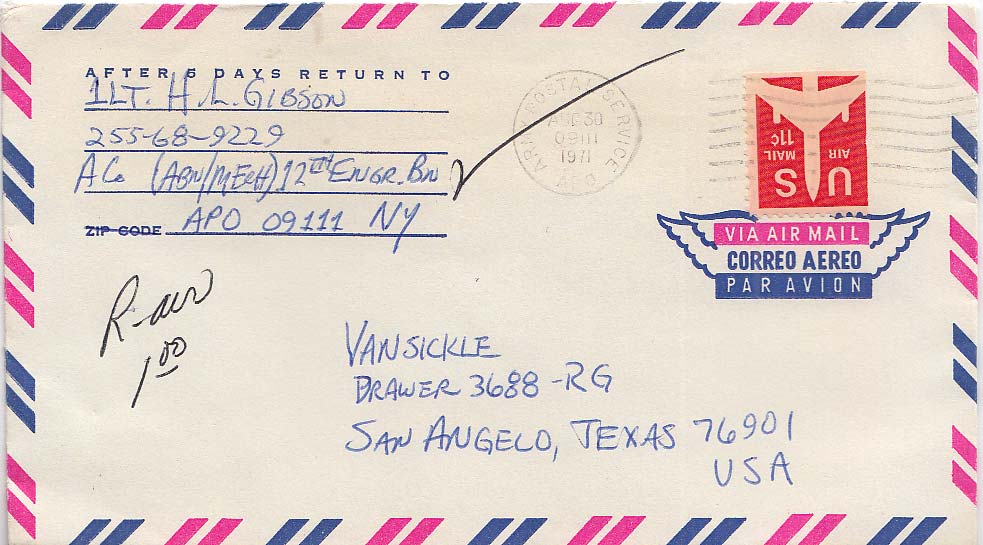 AFTER 5 DAYS RETURN TO
1LT. H.L. GIBSON
255-68-9229
A Co (ABN/MECH) 12TH ENGR. BN
ZIP CODE APO 09111 NY
ARMY POSTAL SERVICE
AUG 30
09111
1971
APO
US
AIR MAIL
11¢
VIA AIR MAIL
CORREO AEREO
PAR AVION
R-air
1.00
VANSICKLE
DRAWER 3688-RG
SAN ANGELO, TEXAS 76901
USA